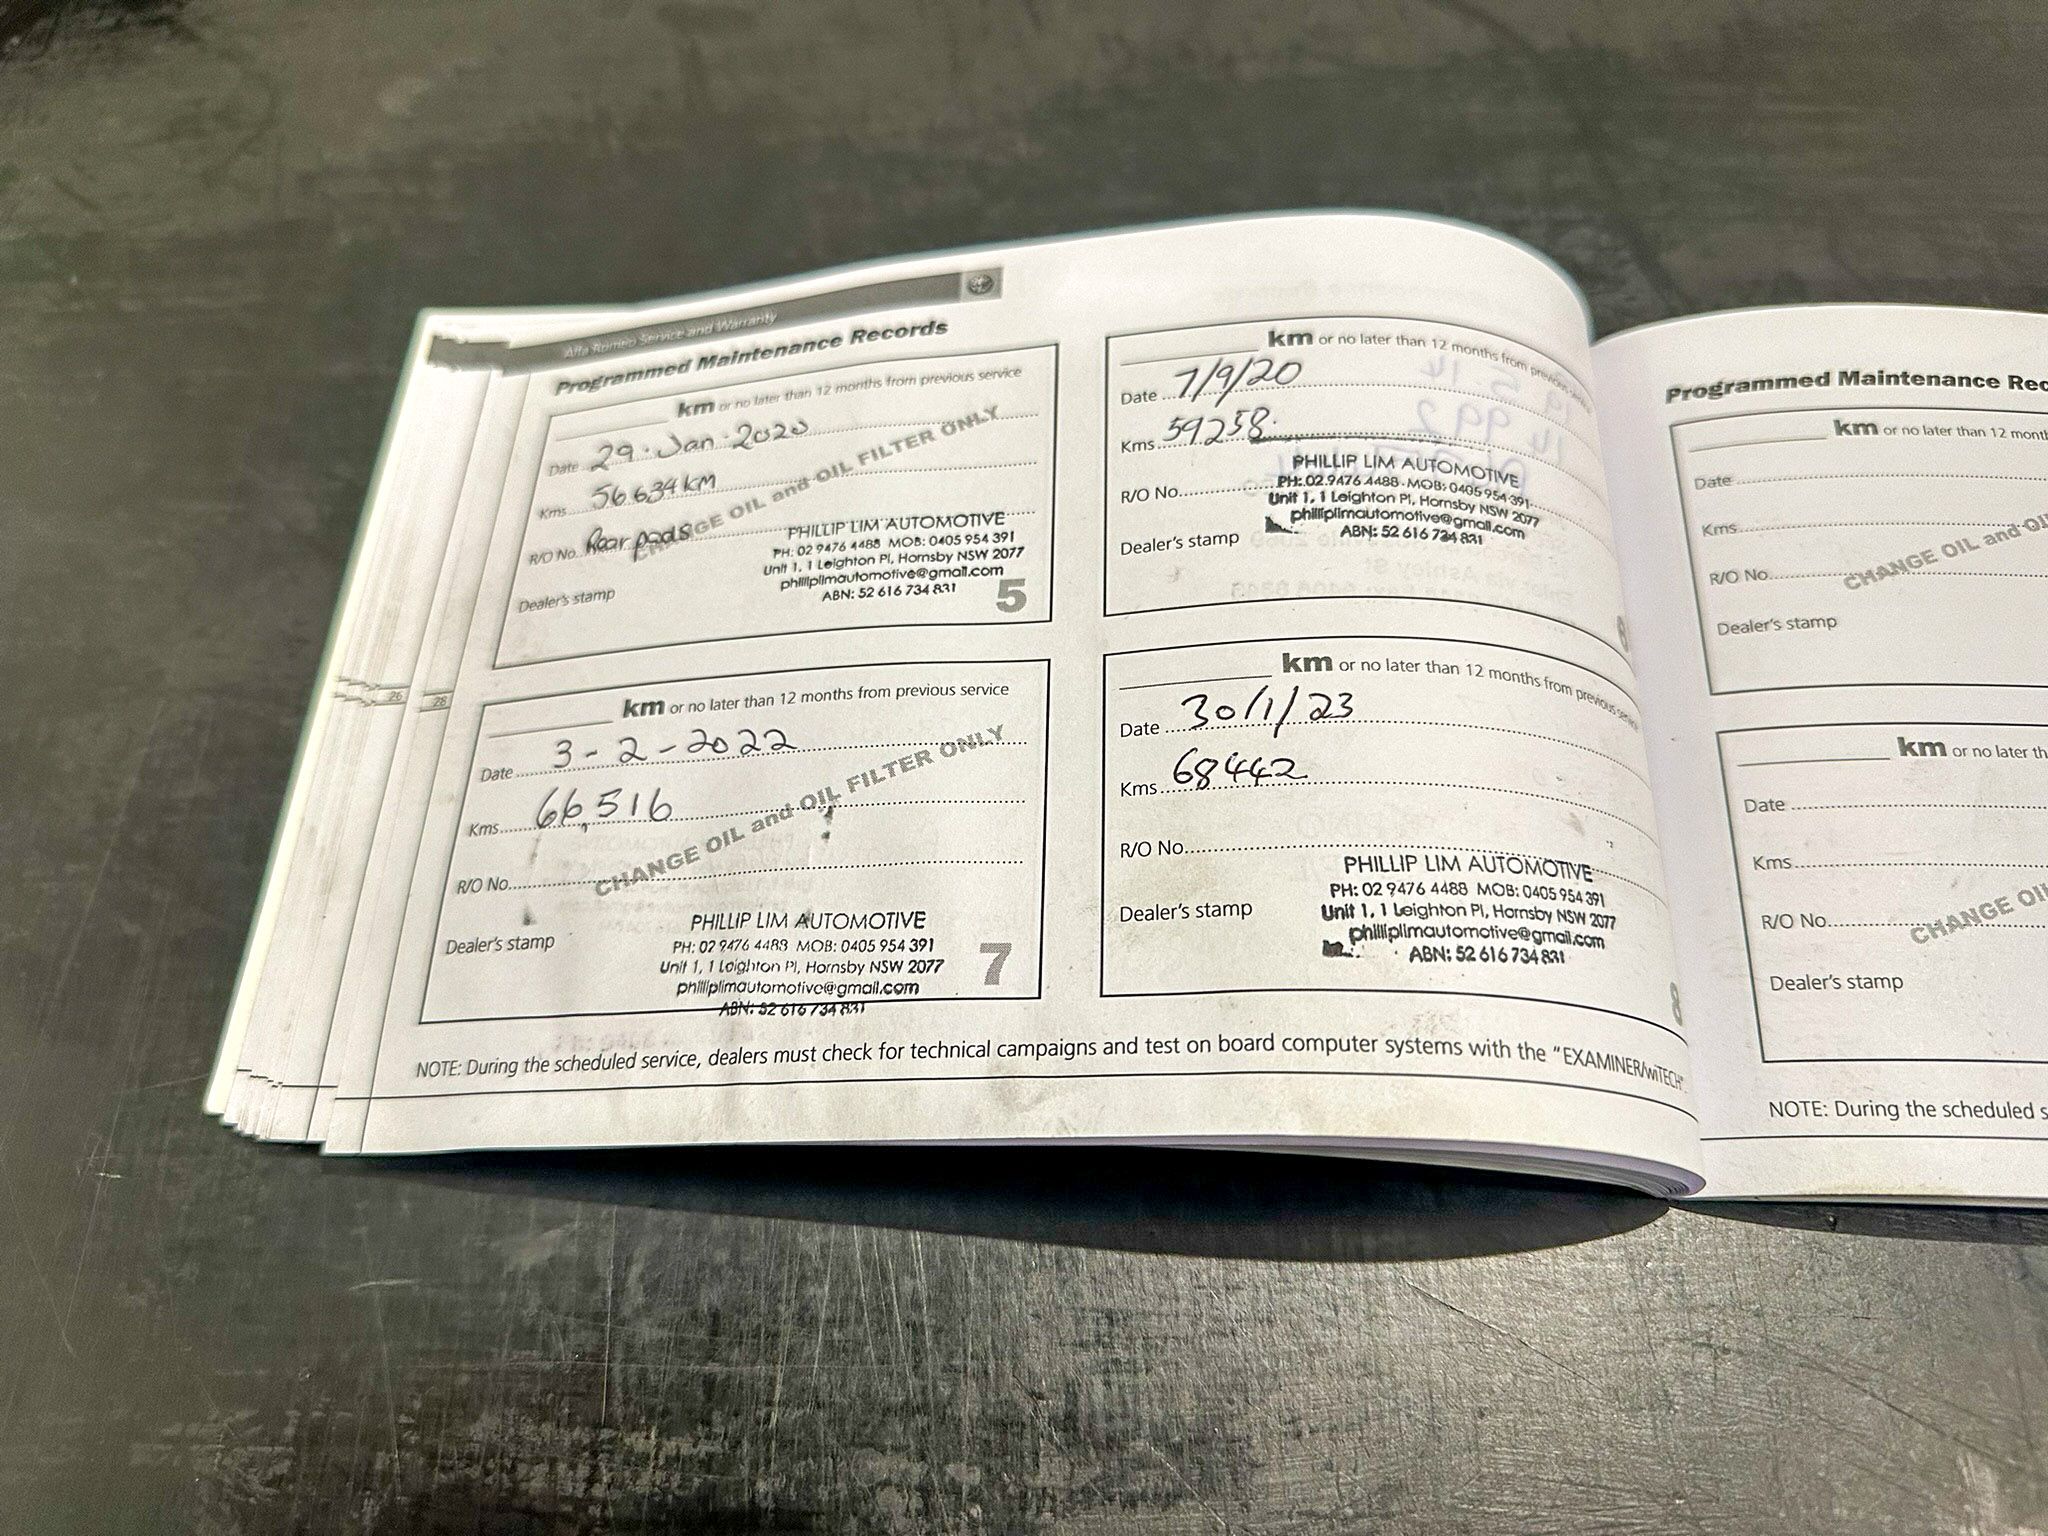 Alfa Romeo Service and Warranty
Programmed Maintenance Records
km or no later than 12 months from previous service
Date 29. Jan. 2020
Kms 56634 km
R/O No. Rear pads
CHANGE OIL and OIL FILTER ONLY
Dealer's stamp
PHILLIP LIM AUTOMOTIVE
PH: 02 9476 4488 MOB: 0405 954 391
Unit 1, 1 Leighton Pl, Hornsby NSW 2077
philliplimautomotive@gmail.com
ABN: 52 616 734 831
5
km or no later than 12 months from previous service
Date 7/9/20
Kms 59258.
R/O No.
Dealer's stamp
PHILLIP LIM AUTOMOTIVE
PH: 02 9476 4488 MOB: 0405 954 391
Unit 1, 1 Leighton Pl, Hornsby NSW 2077
philliplimautomotive@gmail.com
ABN: 52 616 734 831
6
km or no later than 12 months from previous service
Date 3-2-2022
Kms 66,516
R/O No.
CHANGE OIL and OIL FILTER ONLY
Dealer's stamp
PHILLIP LIM AUTOMOTIVE
PH: 02 9476 4488 MOB: 0405 954 391
Unit 1, 1 Leighton Pl, Hornsby NSW 2077
philliplimautomotive@gmail.com
ABN: 52 616 734 831
7
km or no later than 12 months from previous service
Date 30/1/23
Kms 68442
R/O No.
Dealer's stamp
PHILLIP LIM AUTOMOTIVE
PH: 02 9476 4488 MOB: 0405 954 391
Unit 1, 1 Leighton Pl, Hornsby NSW 2077
philliplimautomotive@gmail.com
ABN: 52 616 734 831
8
NOTE: During the scheduled service, dealers must check for technical campaigns and test on board computer systems with the "EXAMINER/wiTECH"
26
28
Programmed Maintenance Rec
km or no later than 12 mont
Date
Kms
R/O No.
CHANGE OIL and OI
Dealer's stamp
km or no later th
Date
Kms
R/O No.
CHANGE OI
Dealer's stamp
NOTE: During the scheduled s